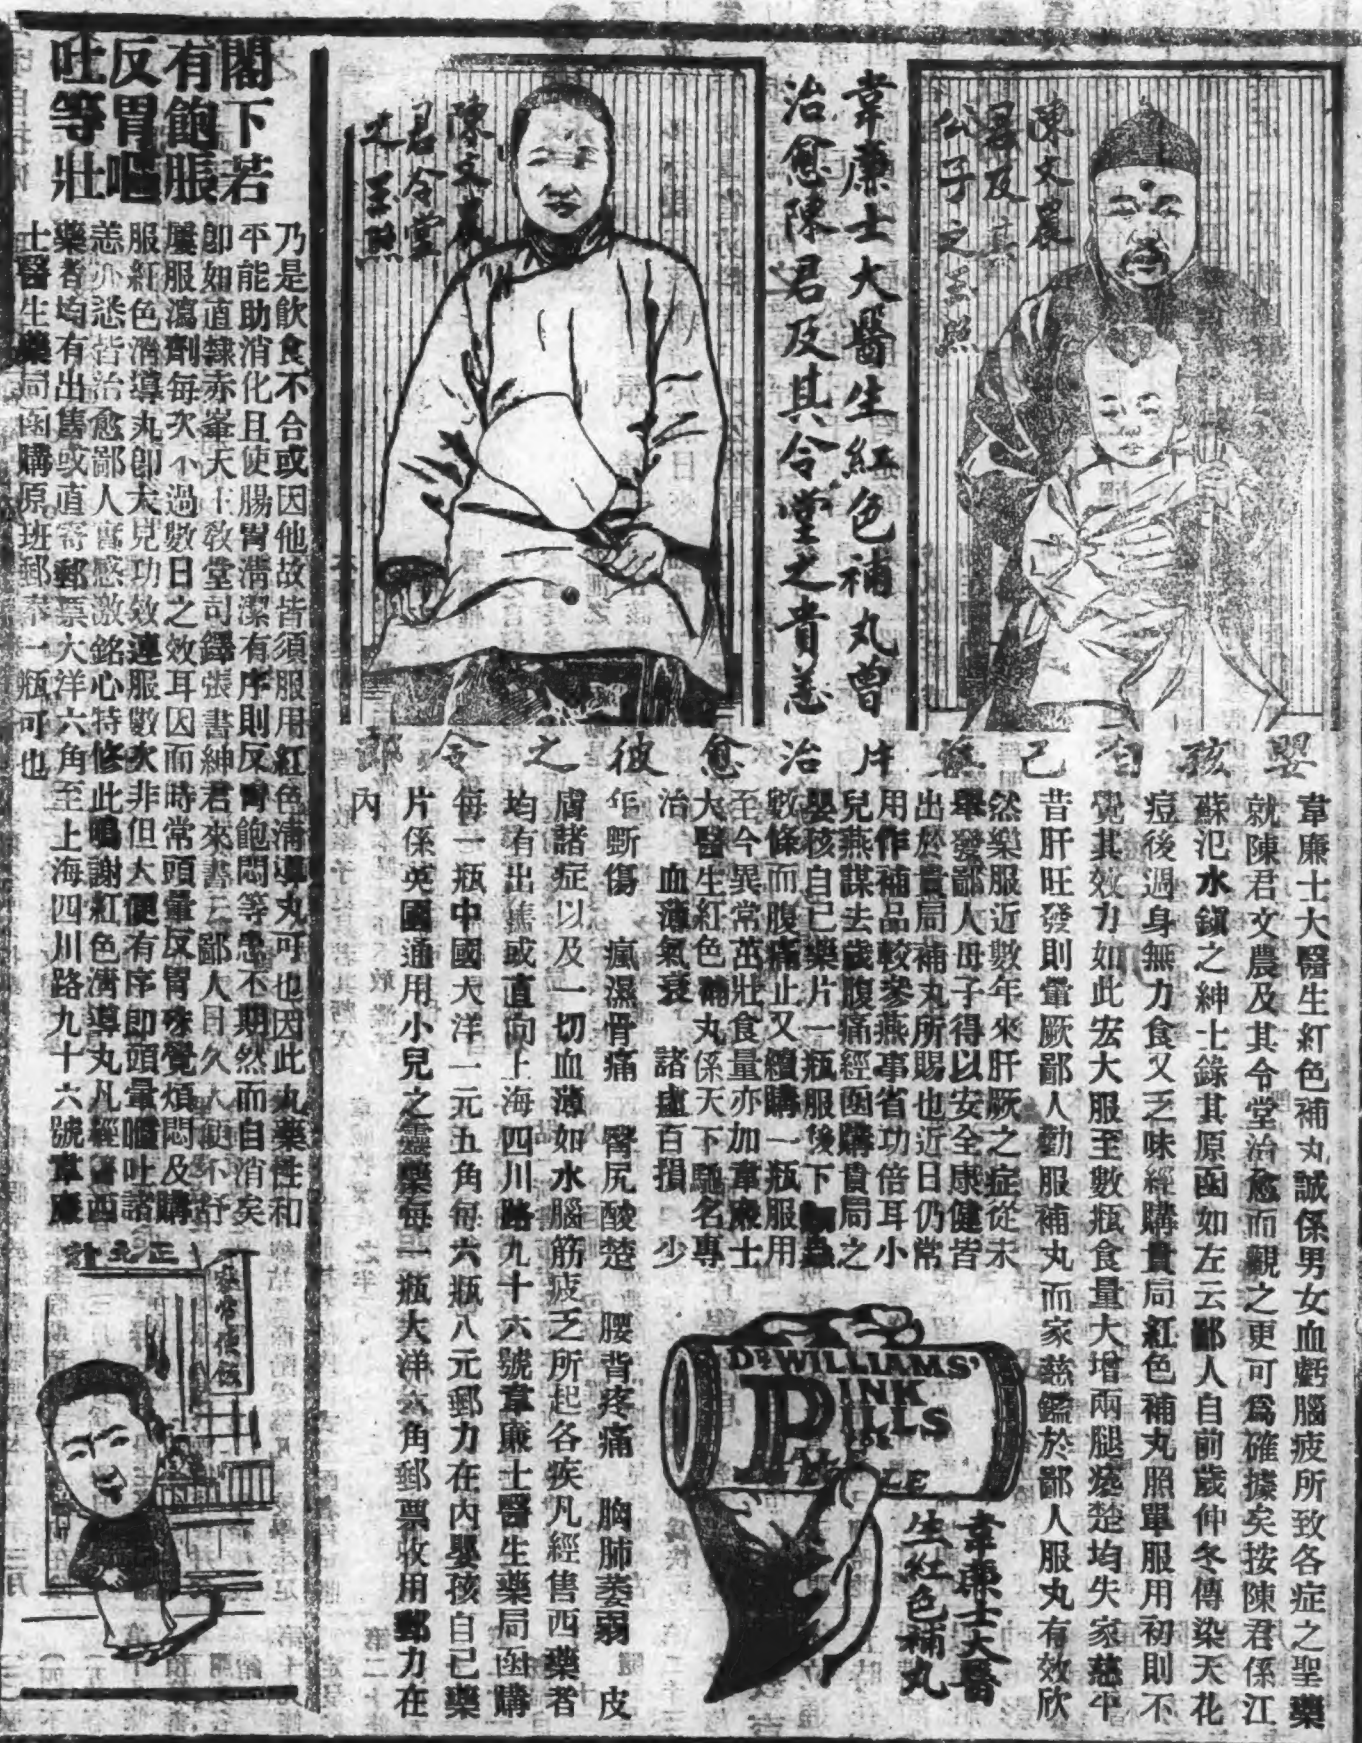 韋廉士大醫生紅色補丸曾
治愈陳君及其令堂之貴恙
陳文農
君及其
公子之玉照
陳文農
君令堂
之玉照
嬰孩自己藥片治愈彼之令郎
韋廉士大醫生紅色補丸誠係男女血虧腦疲所致各症之聖藥
就陳君文農及其令堂治愈而觀之更可爲確據矣按陳君係江
蘇氾水鎮之紳士錄其原函如左云鄙人自前歲仲冬傳染天花
痘後週身無力食又乏味經購貴局紅色補丸照單服用初則不
覺其效力如此宏大服至數瓶食量大增兩腿痠楚均失家慈平
昔肝旺發則暈厥鄙人勸服補丸而家慈鑑於鄙人服丸有效欣
然樂服近數年來肝厥之症從未
舉發鄙人母子得以安全康健皆
出於貴局補丸所賜也近日仍常
用作補品較參燕事省功倍耳小
兒燕謀去歲腹痛經函購貴局之
嬰孩自己藥片一瓶服後下蛔蟲
數條而腹痛止又續購一瓶服用
至今異常茁壯食量亦加韋廉士
大醫生紅色補丸係天下馳名專
治 血薄氣衰 諸虛百損 少
年斲傷 瘋濕骨痛 臀尻酸楚 腰背疼痛 胸肺萎弱 皮
膚諸症以及一切血薄如水腦筋疲乏所起各疾凡經售西藥者
均有出售或直向上海四川路九十六號韋廉士醫生藥局函購
每一瓶中國大洋一元五角每六瓶八元郵力在內嬰孩自己藥
片係英國通用小兒之靈藥每一瓶大洋六角郵票收用郵力在
內
DR WILLIAMS'
PINK
PILLS
韋廉士大醫
生紅色補丸
閣下若
有飽脹
反胃嘔
吐等壯
乃是飲食不合或因他故皆須服用紅色清導丸可也因此丸藥性和
平能助消化且使腸胃清潔有序則反胃飽悶等患不期然而自消矣
卽如直隸赤峯天主教堂司鐸張書紳君來書云鄙人日久大便不舒
屢服瀉劑每次不過數日之效耳因而時常頭暈反胃殊覺煩悶及購
服紅色清導丸卽大見功效連服數次非但大便有序即頭暈嘔吐諸
恙亦悉皆治愈鄙人實感激銘心特修此鳴謝紅色清導丸凡經售西
藥者均有出售或直寄郵票大洋六角至上海四川路九十六號韋廉
士醫生藥局函購原班郵奉一瓶可也
家常便飯